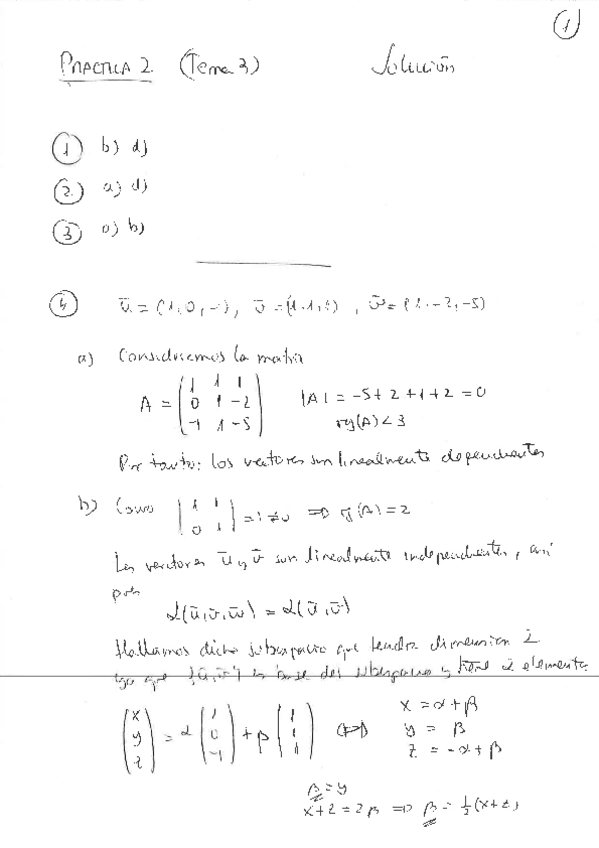 1
PRACTICA 2 (Tema 3) Solución
1 b) d)
2 a) d)
3 a) b)
4 ū = (1,0,-1), v̄ = (1,1,1), w̄ = (1,-2,-5)
a) Consideremos la matriz
A = ( 1 1 1 / 0 1 -2 / -1 1 -5 ) |A| = -5+2+1+2 = 0
rg(A) < 3
Por tanto: los vectores son linealmente dependientes
b) Como | 1 1 / 0 1 | = 1 ≠ 0 ⇒ rg(A) = 2
Los vectores ū y v̄ son linealmente independientes, así
pues
L(ū, v̄, w̄) = L(ū, v̄)
Hallamos dicho subespacio que tendrá dimension 2
ya que {ū, v̄} es base del subespacio y tiene 2 elementos
( x / y / z ) = α ( 1 / 0 / -1 ) + β ( 1 / 1 / 1 ) ⇔ x = α + β
y = β
z = -α + β
β = y
x + z = 2β ⇒ β = 1/2 (x + z)